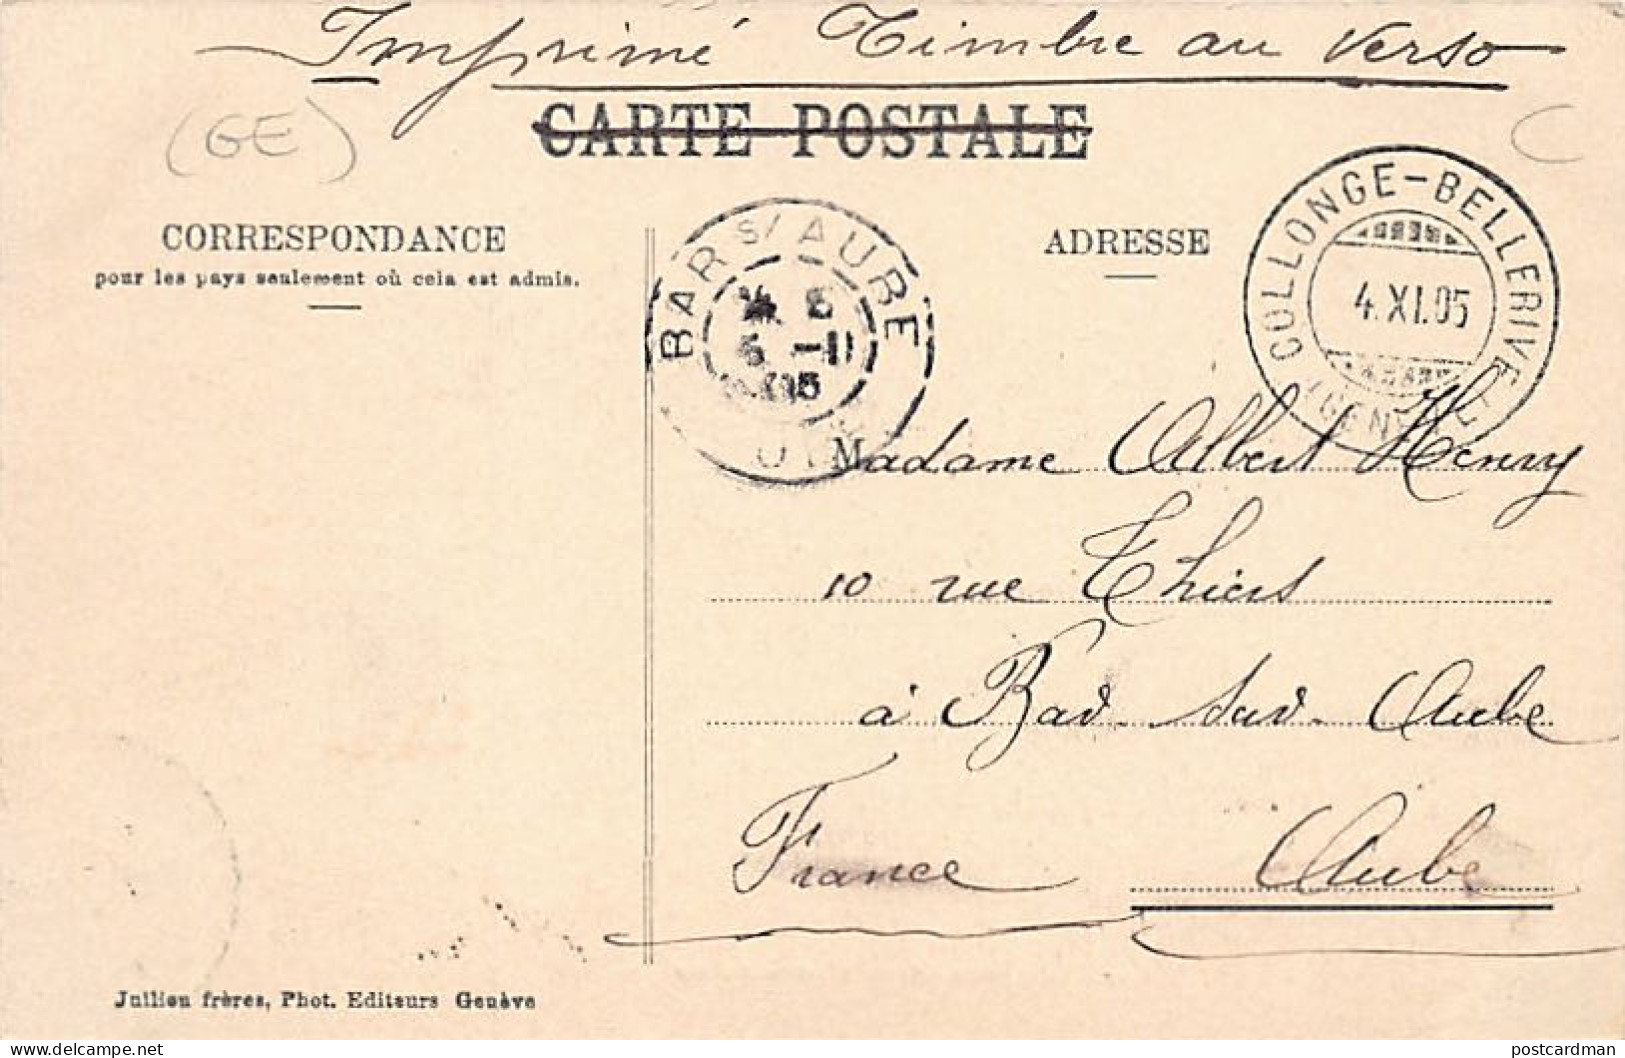 Imprimé Timbre au verso
(GE)
CARTE POSTALE
CORRESPONDANCE
pour les pays seulement où cela est admis.
ADRESSE
BAR S/AURE
5 -11
05
COLLONGE-BELLERIVE
4.XI.05
(GENÈVE)
Madame Albert Henry
10 rue Thiers
à Bar-sur-Aube
France Aube
Jullien frères, Phot. Editeurs Genève
postcardman